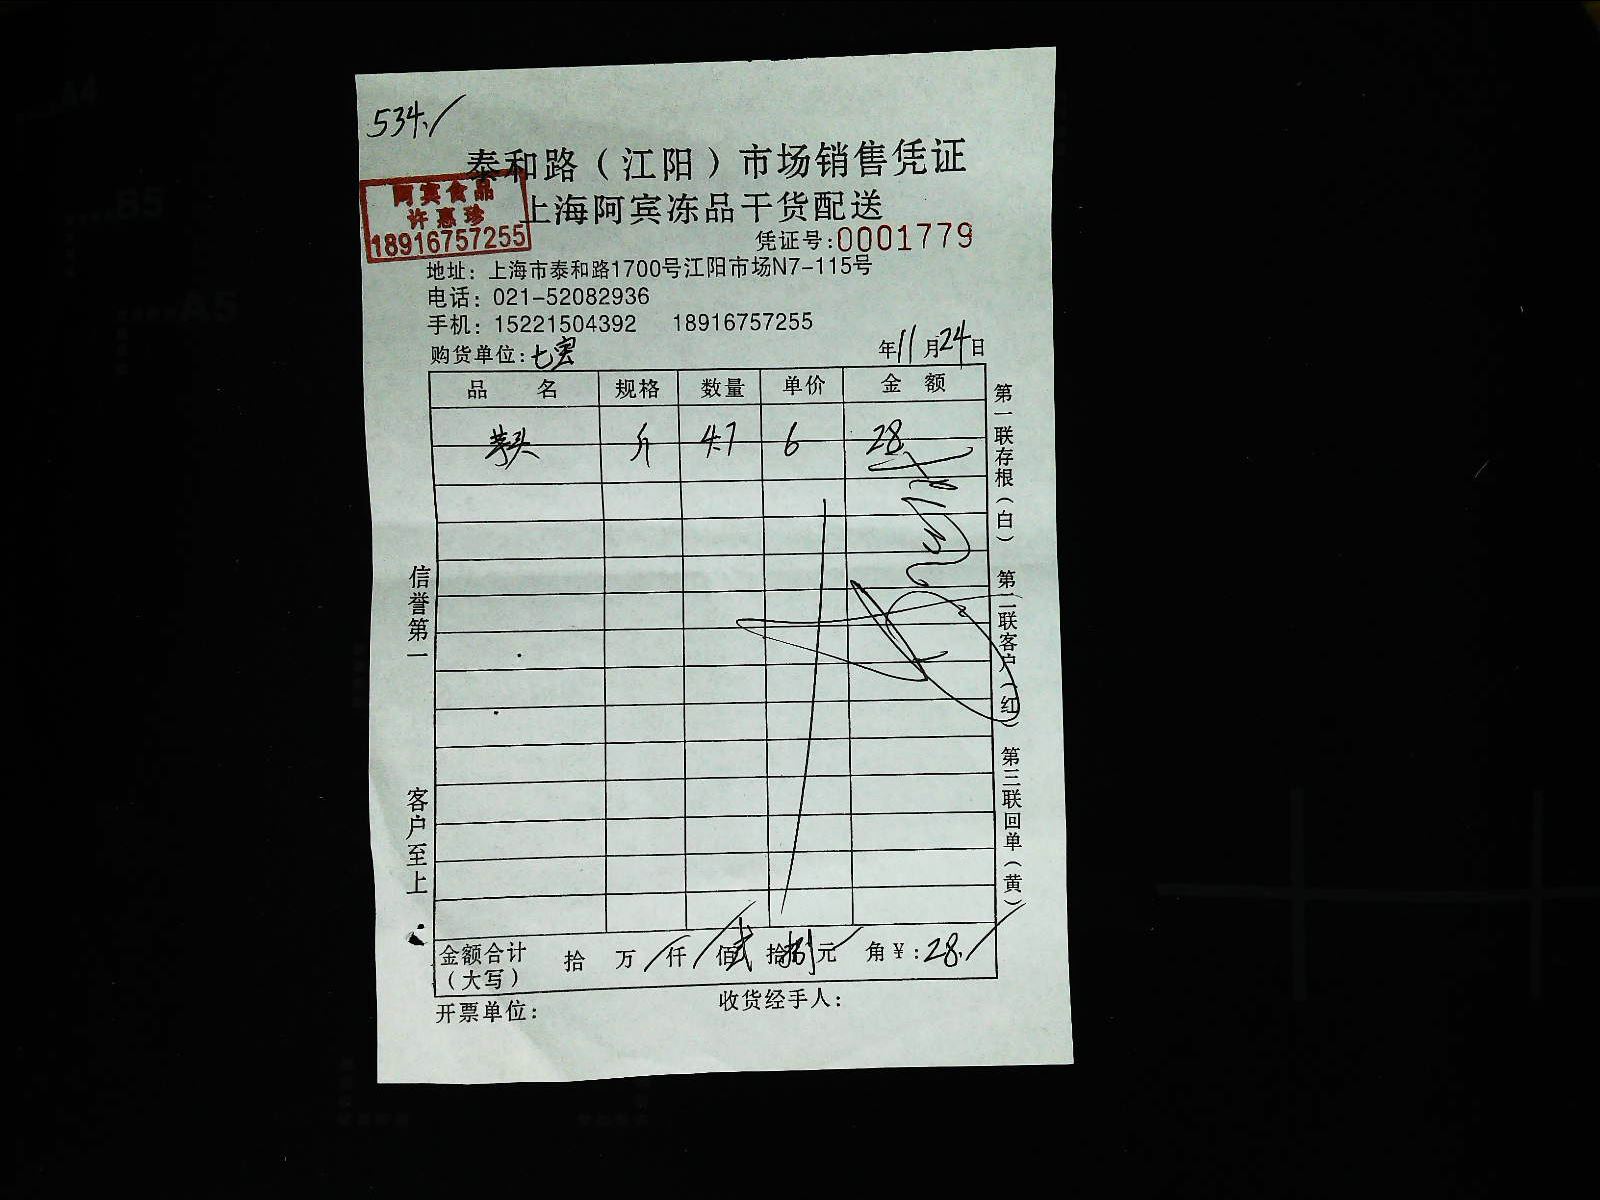 534.
泰和路（江阳）市场销售凭证
阿宾食品
许惠珍
18916757255
上海阿宾冻品干货配送
凭证号:0001779
地址：上海市泰和路1700号江阳市场N7-115号
电话：021-52082936
手机：15221504392 18916757255
购货单位:七宝 年11月24日
品 名 规格 数量 单价 金 额
芋头 斤 4.7 6 28
第一联存根（白） 第二联客户（红） 第三联回单（黄）
信誉第一
客户至上
金额合计（大写） 拾 万 仟 佰 贰 拾 捌 元 角 ¥:28.
开票单位： 收货经手人：